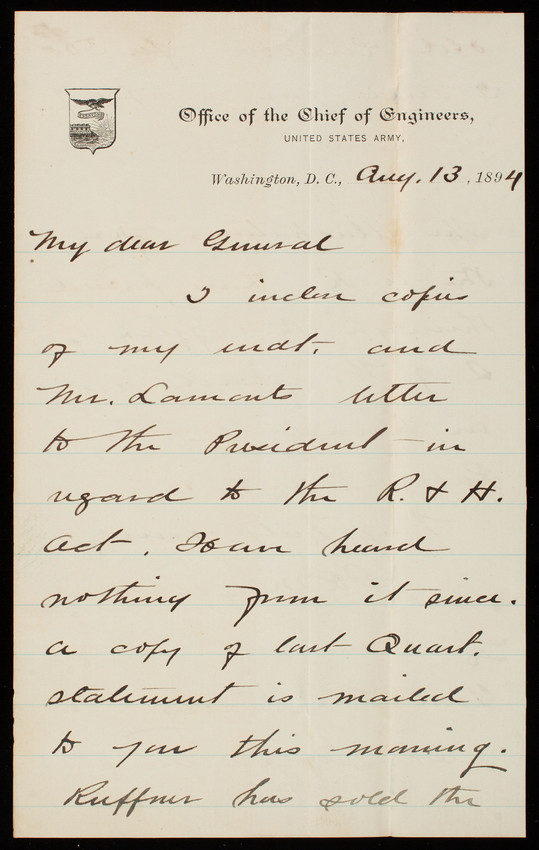 Office of the Chief of Engineers,
UNITED STATES ARMY,
Washington, D. C., Aug. 13, 1894
My dear General
I inclose copies
of my indt. and
Mr. Lamonts letter
to the President in
regard to the R. & H.
Act. Have heard
nothing from it since.
A copy of last Quart.
statement is mailed
to you this morning.
Ruffner has sold the